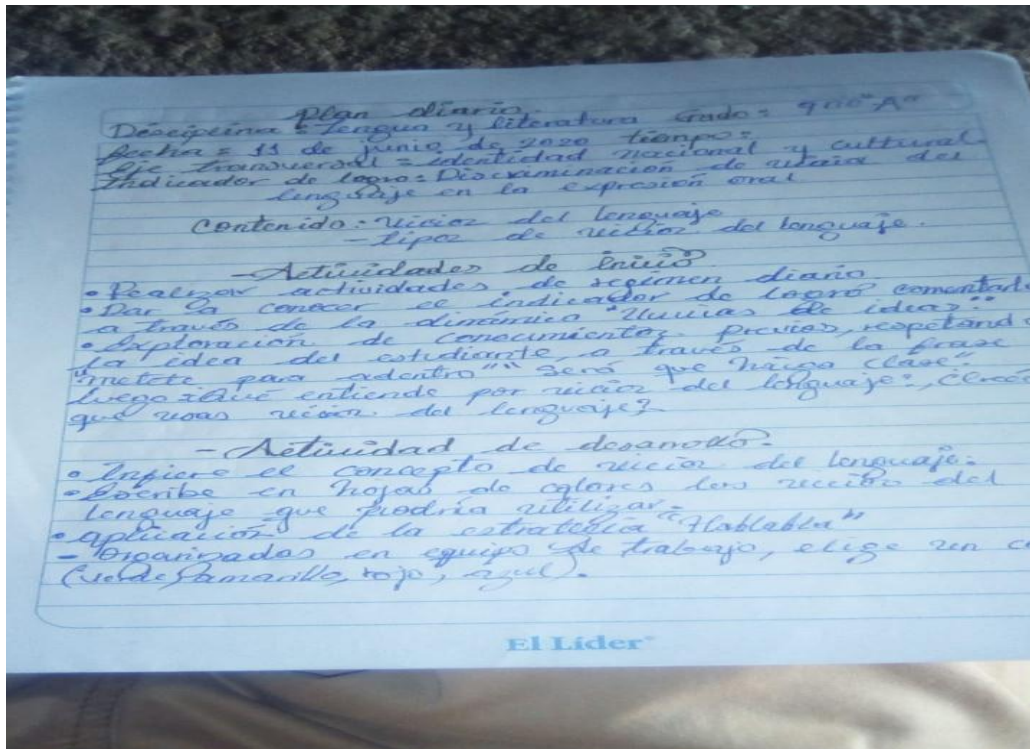 Plan diario
Disciplina = Lengua y literatura Grado = 9no "A"
Fecha = 11 de junio de 2020 tiempo =
Eje transversal = identidad nacional y cultural.
Indicador de logro: Discriminación de
lenguaje en la expresión oral
Contenido: vicios del lenguaje
- tipos de vicios del lenguaje.
- Actividades de Inicio
• Realizar actividades de régimen diario
• Dar a conocer el indicador de logro comentarlo
a través de la dinámica "lluvias de ideas":
• Exploración de conocimientos previos, respetando
la idea del estudiante, a través de la frase
"metete para adentro" " Será que haiga clase"
luego ¿Qué entiende por vicios del lenguaje:, ¿Crees
que usas vicios del lenguaje?
- Actividad de desarrollo:
• Infiere el concepto de vicios del lenguaje:
• Escribe en hojas de colores los vicios del
lenguaje que podría utilizar=
• aplicación de la estrategia "Hablabla"
- Organizados en equipo de trabajo, elige un
(verde, amarillo, rojo, azul).
El Líder